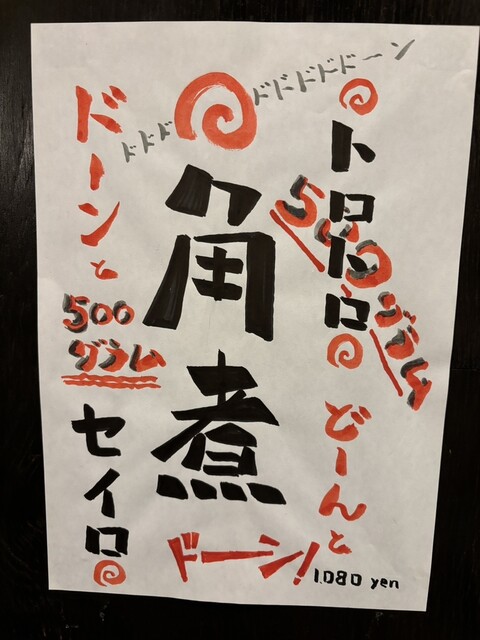 トロトロ
500グラム
どーんと
ドドドドドドドーン
角煮
ドーン!
1.080 yen
ドーンと
500
グラム
セイロ